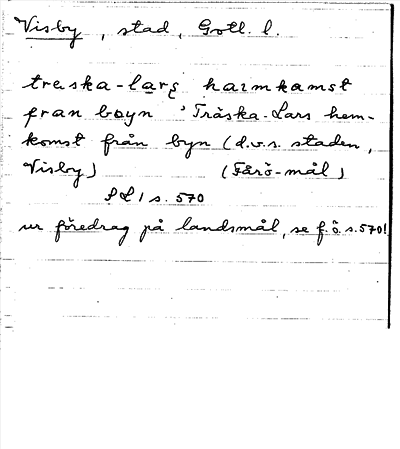 Visby, stad, Gotl. l.
treska-larş haımkamst
fran boyn 'Träska-Lars hem-
komst från byn (d.v.s. staden,
Visby) (Fårö-mål)
PLI s. 570
ur föredrag på landsmål, se f.ö. s. 570!